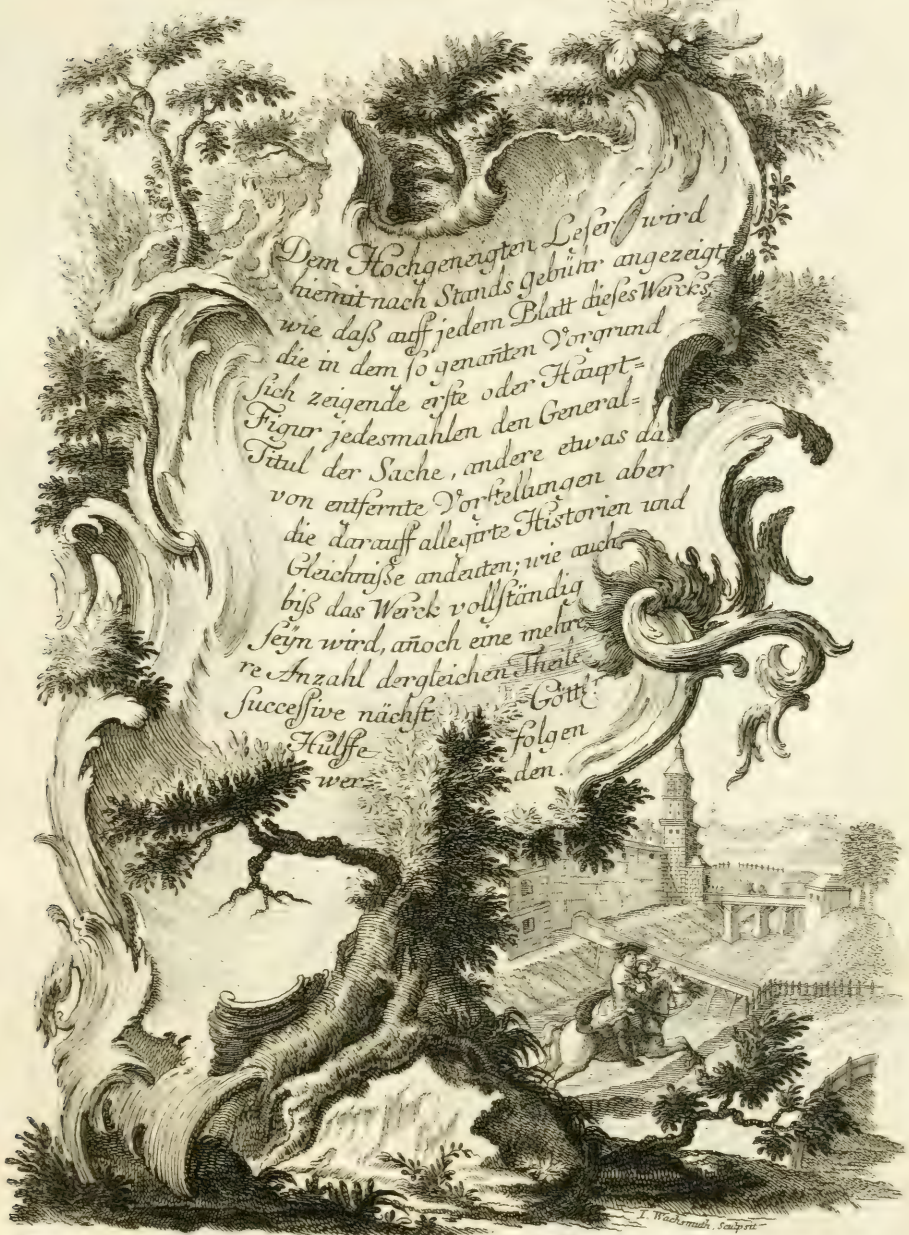 Dem Hochgeneigten Leser wird
hiemit nach Stands Gebühr angezeigt,
wie daß auff jedem Blatt dieses Wercks,
die in dem so genan̄ten Vorgrund
sich zeigende erste oder Haupt=
Figur jedesmahlen den General=
Titul der Sache, andere etwas da
von entfernte Vorstellungen aber
die darauff allegirte Historien und
Gleichniße andeuten; wie auch
biß das Werck vollständig
seÿn wird, an̄och eine mehre
re Anzahl dergleichen Theile
successive nächst Göttl:
Hülffe folgen
wer= den.
I. Wachsmuth. Sculpsit